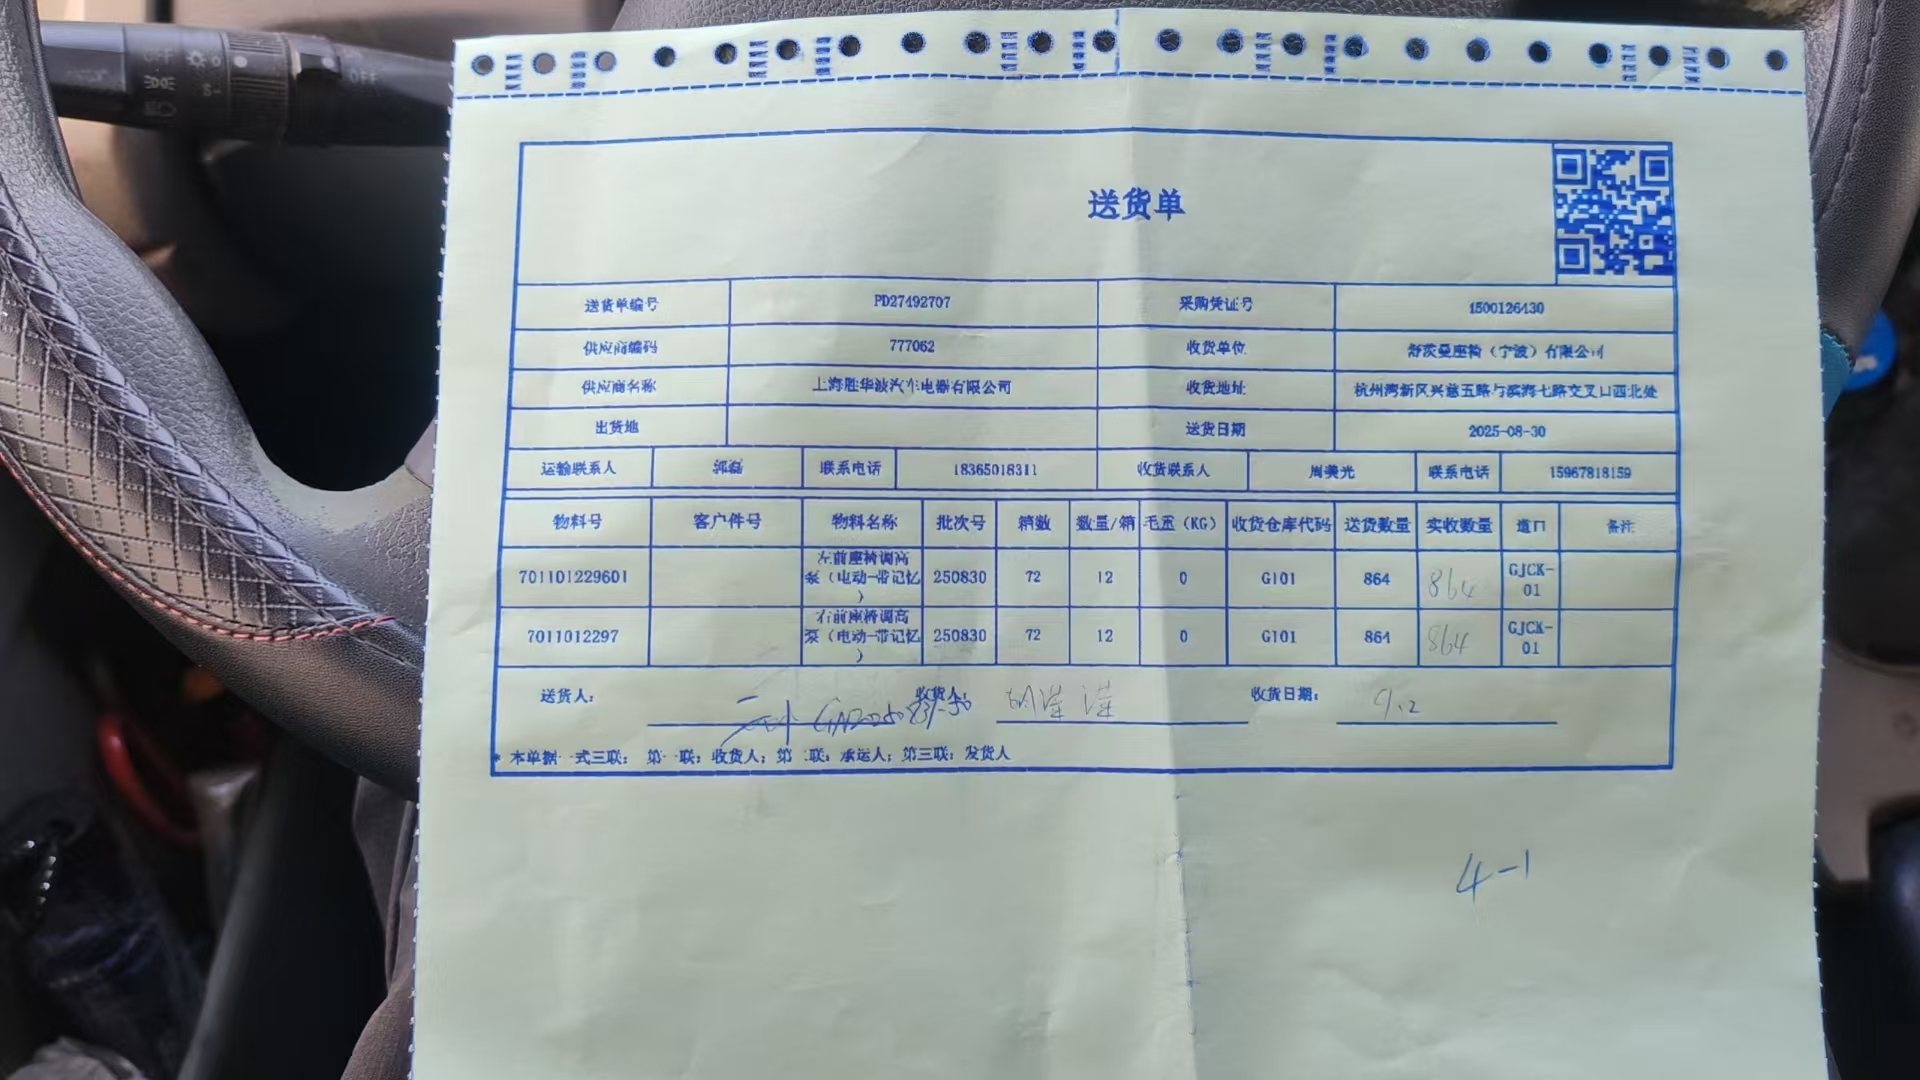 OFF
送货单
送货单编号 PD27492707 采购凭证号 1500126430
供应商编码 777062 收货单位 舒茨曼座椅（宁波）有限公司
供应商名称 上海胜华波汽车电器有限公司 收货地址 杭州湾新区兴慈五路与滨海七路交叉口西北处
出货地 送货日期 2025-08-30
运输联系人 郭磊 联系电话 18365018311 收货联系人 周美光 联系电话 15967818159
物料号 客户件号 物料名称 批次号 箱数 数量/箱 毛重（KG） 收货仓库代码 送货数量 实收数量 道口 备注
701101229601 左前座椅调高泵（电动-带记忆） 250830 72 12 0 G101 864 864 GJCK-01
7011012297 右前座椅调高泵（电动-带记忆） 250830 72 12 0 G101 864 864 GJCK-01
送货人： 收货人： 收货日期： 9.2
* 本单据一式三联：第一联：收货人；第二联：承运人；第三联：发货人
4-1